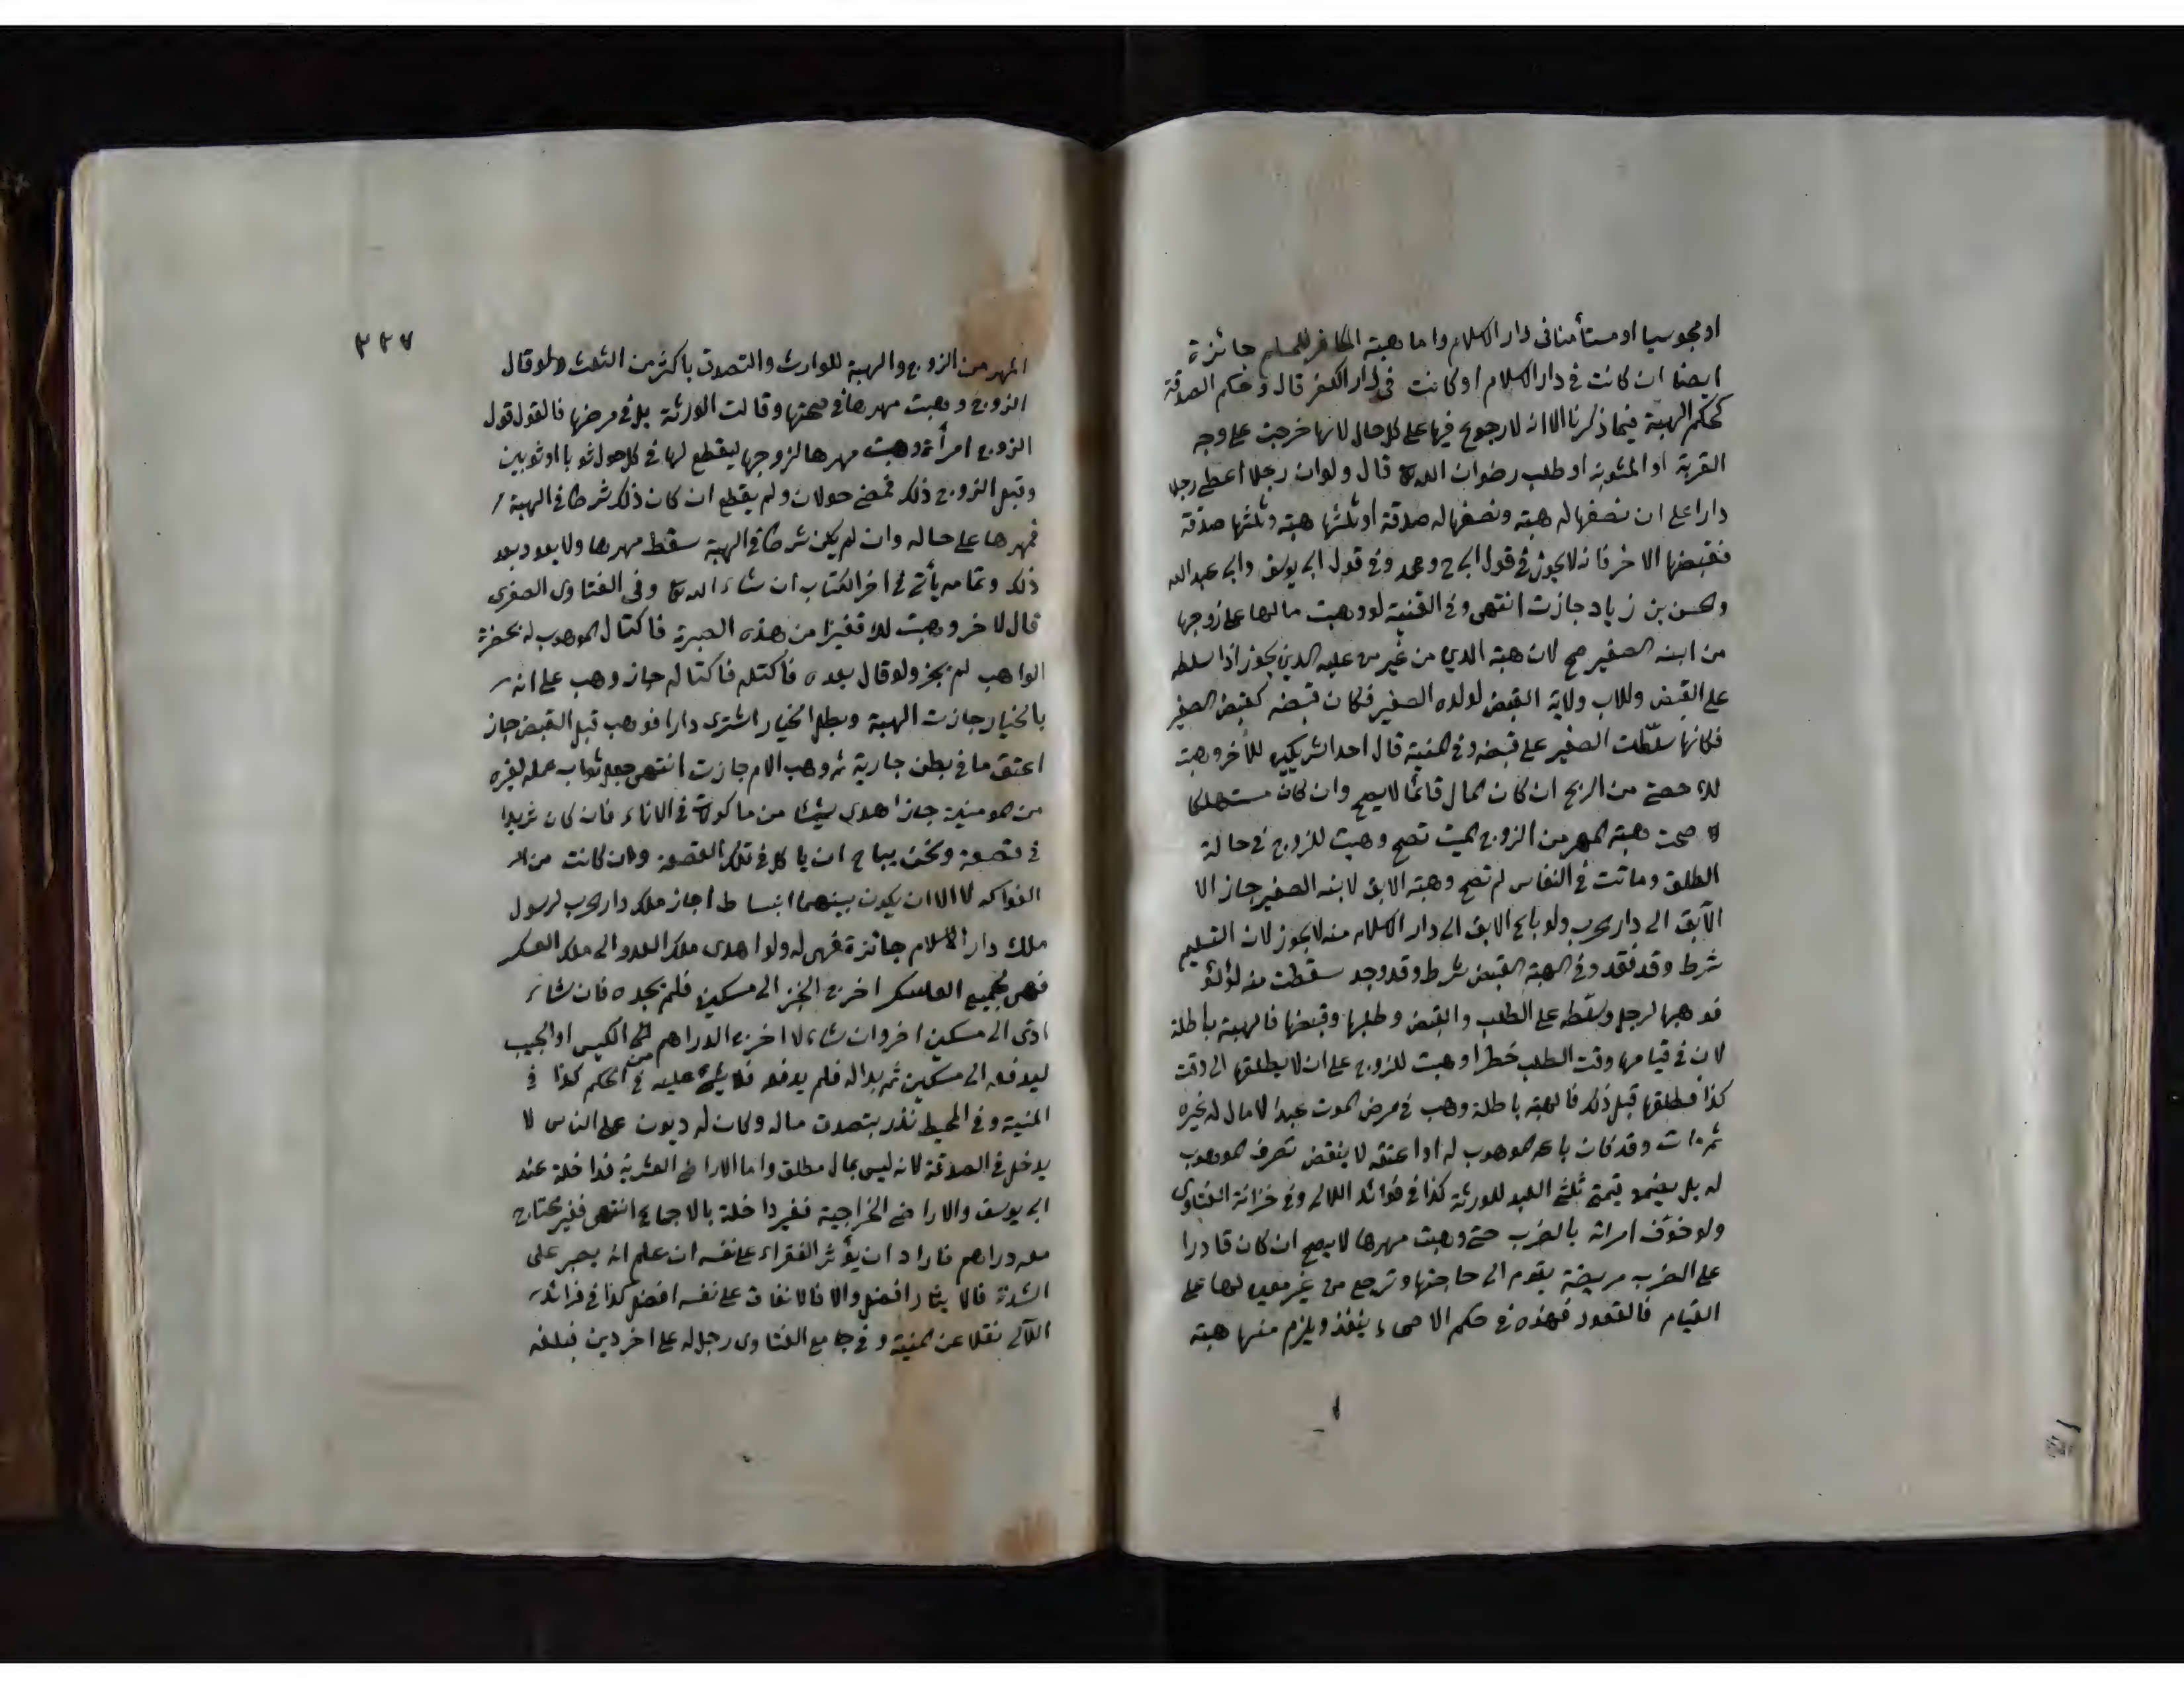 او مجوسيا او مستأمنا فى دار الاسلام واما هبة الكافر للمسلم جائزة
ايضا ان كانت فى دار الاسلام او كانت فى دار الكفر قال وحكم الصدقة
كحكم الهبة فيما ذكرنا الا انه لا رجوع فيها على كل حال لانها خرجت على وجه
القربة او المثوبة او طلب رضوان الله قال ولو ان رجلا اعطى رجلا
دارا على ان نصفها له هبة ونصفها له صدقة او ثلثها هبة وثلثها صدقة
فقبضها الاخر فانه لا يجوز فى قول ابى ح ومحمد وفى قول ابى يوسف وابى عبد الله
وحسن بن زياد جازت انتهى وفى القنية لو وهبت مالها على زوجها
من ابنه الصغير صح لان هبة الدين من غير من عليه الدين يجوز اذا سلطه
على القبض وللاب ولاية القبض لولده الصغير فكان قبضه كقبض الصغير
فكانها سلّطت الصغير على قبضه وفى المنية قال احد الشريكين للآخر وهبت
لك حصتى من الربح ان كان المال قائما لا يصح وان كان مستهلكا
صحت هبة المهر من الزوج الميت تصح وهبت للزوج فى حالة
الطلق وماتت فى النفاس لم تصح وهبة الابق لابنه الصغير جاز الا
الآبق الى دار الحرب ولو باع الابق الى دار الاسلام منه لا يجوز لان التسليم
شرط وقد فقد وفى الهبة القبض شرط وقد وجد سقطت منه لؤلؤ
فوهبها لرجل وسلّطه على الطلب والقبض وطلبها وقبضها فالهبة باطلة
لان فى قيامها وقت الطلب خطرا وهبت للزوج على ان لا يطلقها الى وقت
كذا فطلقها قبل ذلك فالهبة باطلة وهب فى مرض الموت عبدا لا مال له غيره
ثم مات وقد كان باعه الموهوب له او اعتقه لا ينقض تصرف الموهوب
له بل يضمن قيمة ثلثى العبد للورثة كذا فى فوائد اللالى وفى خزانة الفتاوى
ولو خوّف امراته بالضرب حتى وهبت مهرها لا يصح ان كان قادرا
على الضرب مريضة يقوم الى حاجتها وترجع من غير معين لها على
القيام فالقعود فهذه فى حكم الاصحاء ينفذ ويلزم منها هبة
٢٢٧
المهر من الزوج والهبة للوارث والتصدق باكثر من الثلث ولو قال
الزوج وهبت مهرها فى صحتها وقالت الورثة بل فى مرضها فالقول قول
الزوج امرأة وهبت مهرها لزوجها ليقطع لها فى كل حول ثوبا او ثوبين
وقبل الزوج ذلك فمضى حولان ولم يقطع ان كان ذلك شرطا فى الهبة
فمهرها على حاله وان لم يكن شرطا فى الهبة سقط مهرها ولا يعود بعد
ذلك وتمامه يأتى فى اخر الكتاب ان شاء الله وفى الفتاوى الصغرى
قال لاخر وهبت لك قفيزا من هذه الصبرة فاكتال الموهوب له بحضرة
الواهب لم يجز ولو قال بعده فاكتله فاكتاله جاز وهب على انه
بالخيار جازت الهبة وبطل الخيار اشترى دارا فوهب قبل القبض جاز
اعتق ما فى بطن جارية ثم وهب الام جازت انتهى جعل ثواب عمله لغيره
من المومنين جاز اهدى شيئا من ماكول فى الاناء فان كان ثريدا
فى قصعة ونحن يباح ان ياكل فى تلك القصعة وان كانت من
الفواكه لا الا ان يكون بينهما انبساط اجاز ملك دار الحرب لرسول
ملك دار الاسلام جائزة فهى له ولو اهدى ملك العدو الى ملك العسكر
فهى لجميع العسكر اخرج الخبز الى مسكين فلم يجده فان شاء
ادى الى مسكين اخر وان شاء لا اخرج الدراهم من الكيس او الجيب
ليدفعه الى مسكين ثم بدا له فلم يدفع فلا شئ عليه فى الحكم كذا فى
المنية وفى المحيط نذر بتصدق ماله وكان له ديون على الناس لا
يدخل فى الصدقة لانه ليس بمال مطلق واما الاراضى العشرية فداخلة عند
ابى يوسف والاراضى الخراجية فغير داخلة بالاجماع انتهى فقير محتاج
معه دراهم فاراد ان يؤثر الفقراء على نفسه ان علم انه يصبر على
الشدة فالايثار افضل والا فالانفاق على نفسه افضل كذا فى فرائد
اللآلى نقلا عن المنية وفى جامع الفتاوى رجل له على اخر دين فبلغه